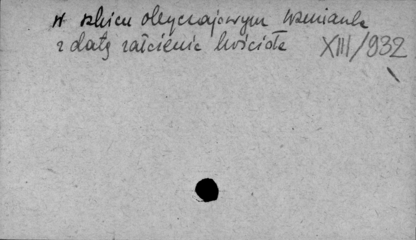 w szkicu obyczajowym wzmianka
z datą założenia kościoła XIII/932